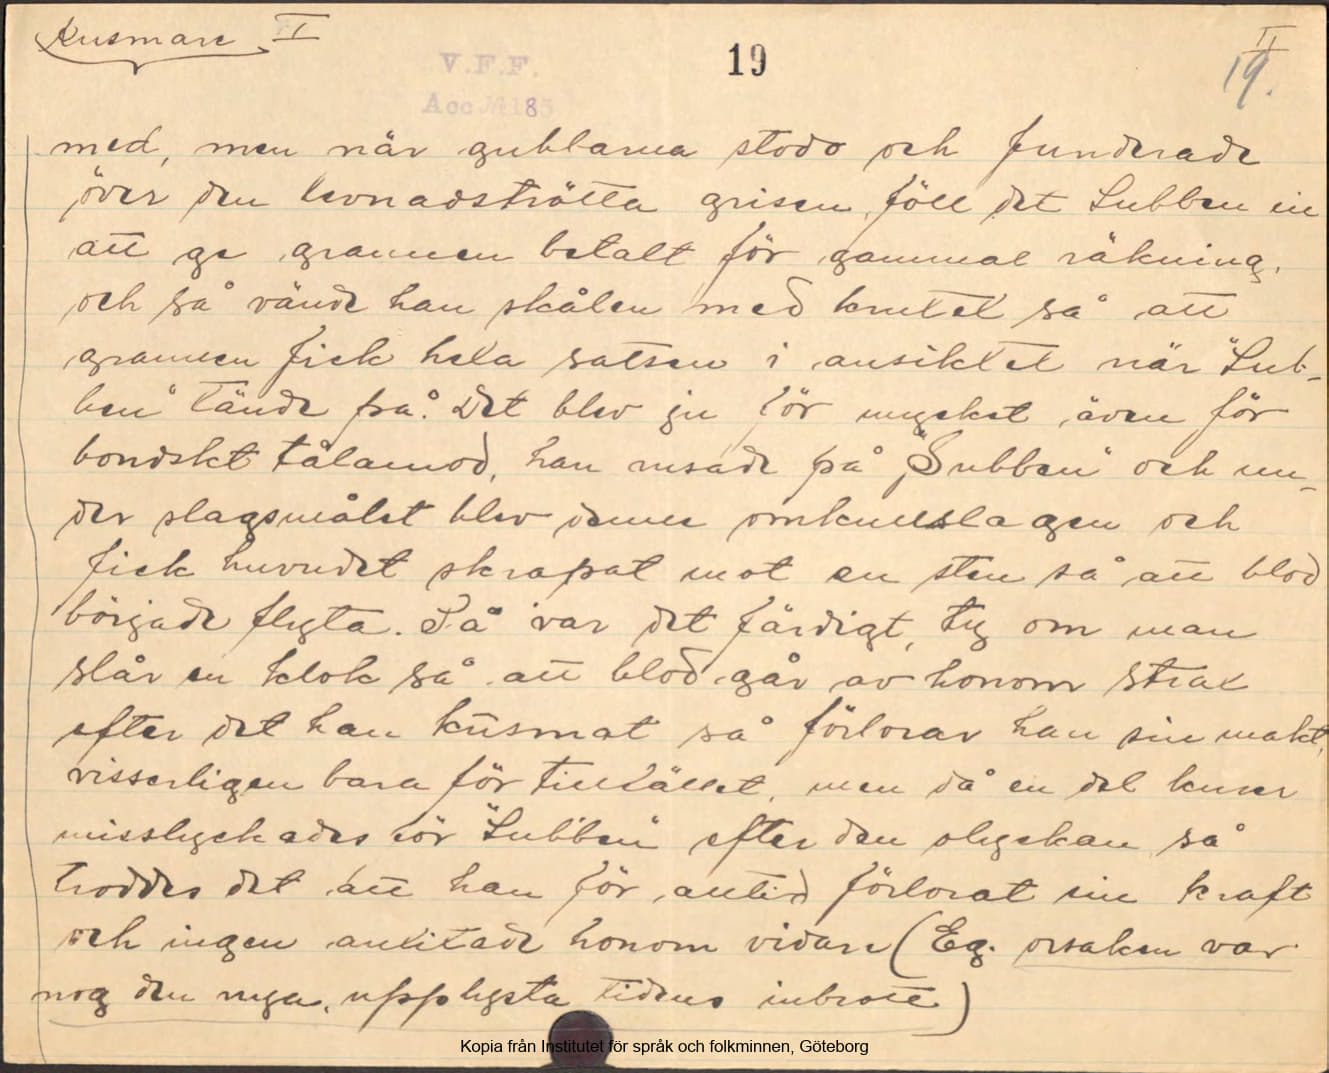 Kusmare II
V.F.F.
19
II
19.
Acc №185
med, men när gubbarna stodo och funderade
över den levnadströtta grisen, föll det Lubben in
att ge grannen betalt för gammal räkning,
och så vände han skålen med krutet så att
grannen fick hela satsen i ansiktet när "Lub-
ben" tände på. Det blev ju för mycket även för
bondskt tålamod, han rusade på "Lubben" och un-
der slagsmålet blev denne omkullslagen och
fick huvudet skrapat mot en sten så att blod
började flyta. Så var det färdigt, ty om man
slår en klok så att blod går av honom strax
efter det han kusmat så förlorar han sin makt,
visserligen bara för tillfället, men då en del kurer
misslyckades för "Lubben" efter den olyckan så
troddes det att han för alltid förlorat sin kraft
och ingen anlitade honom vidare (Eg. orsaken var
nog den nya, upplysta tidens inbrott)
Kopia från Institutet för språk och folkminnen, Göteborg